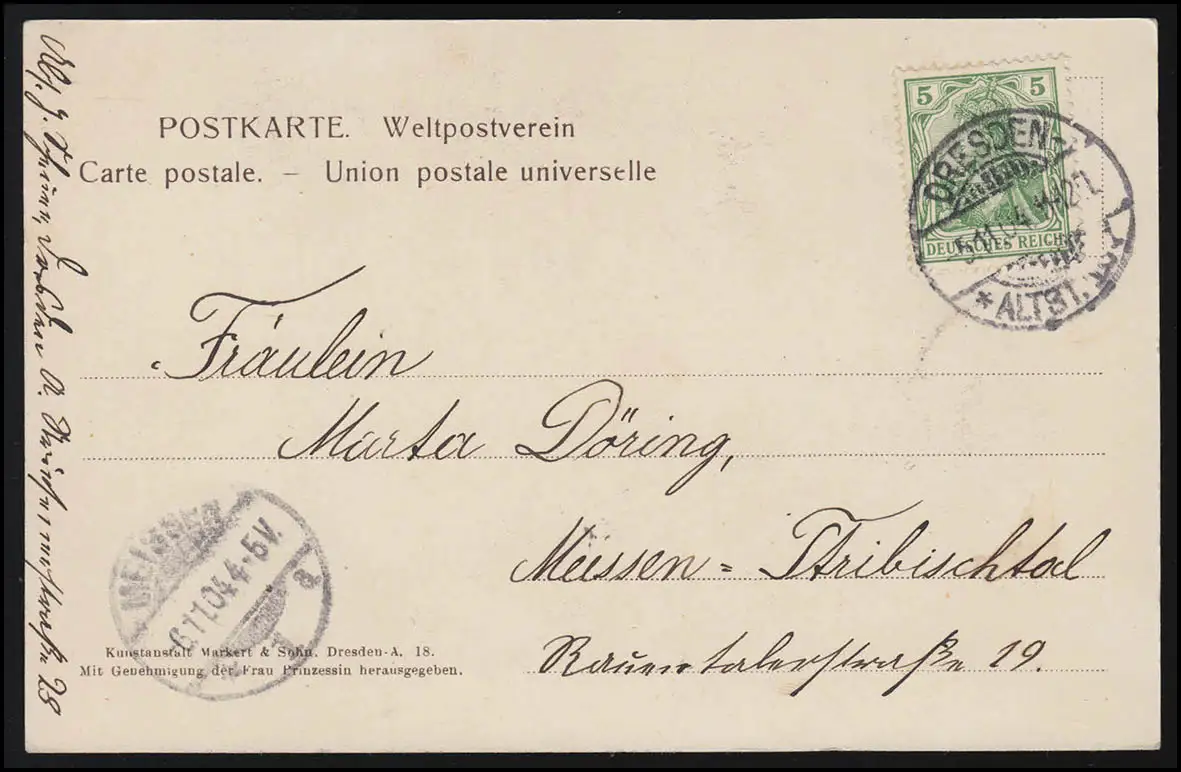 POSTKARTE. Weltpostverein
Carte postale. – Union postale universelle
5 5
DEUTSCHES REICH
DRESDEN-
5.11.04. 11-12
* ALTST.
Fräulein
Marta Döring,
Meissen = Tribischtal
Rauentalerstraße 19.
MEISSEN
6.11.04. 4-5V.
Kunstanstalt Markert & Sohn. Dresden-A. 18.
Mit Genehmigung der Frau Prinzessin herausgegeben.
Dresden A. 28